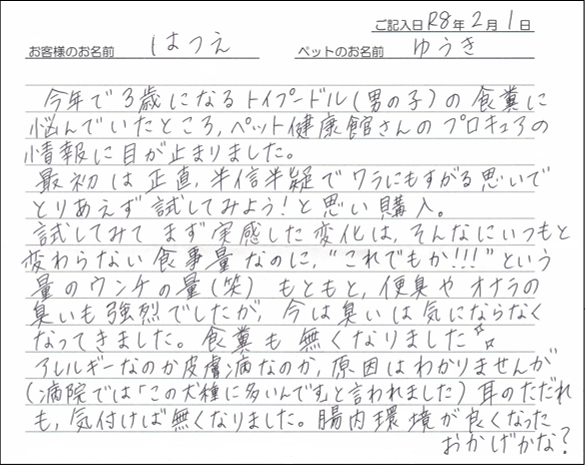 ご記入日 R8年 2月 1日
お客様のお名前 はつえ ペットのお名前 ゆうき
今年で3歳になるトイプードル(男の子)の食糞に
悩んでいたところ,ペット健康館さんのプロキュアの
情報に目が止まりました。
最初は正直,半信半疑でワラにもすがる思いで
とりあえず試してみよう!と思い購入。
試してみてまず実感した変化は,そんなにいつもと
変わらない食事量なのに,"これでもか!!!"という
量のウンチの量(笑) もともと,便臭やオナラの
臭いも強烈でしたが,今は臭いは気にならなく
なってきました。食糞も無くなりました✨
アレルギーなのか皮膚病なのか,原因はわかりませんが
(病院では「この犬種に多いんですと言われました)耳のただれ
も,気付けば無くなりました。腸内環境が良くなった
おかげかな?